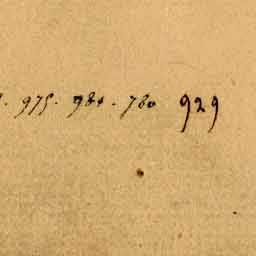 975. 984. 780 929